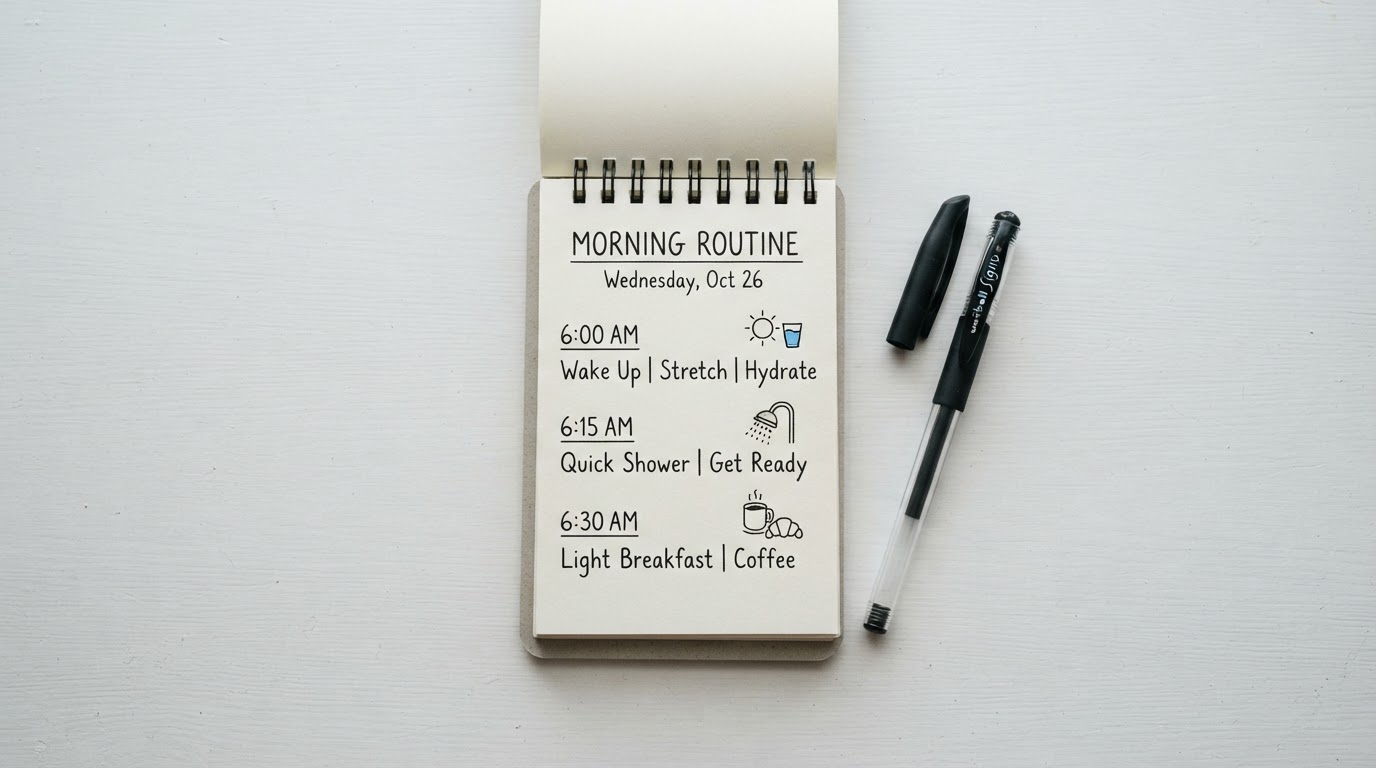 MORNING ROUTINE
Wednesday, Oct 26
6:00 AM
Wake Up | Stretch | Hydrate
6:15 AM
Quick Shower | Get Ready
6:30 AM
Light Breakfast | Coffee
Signo